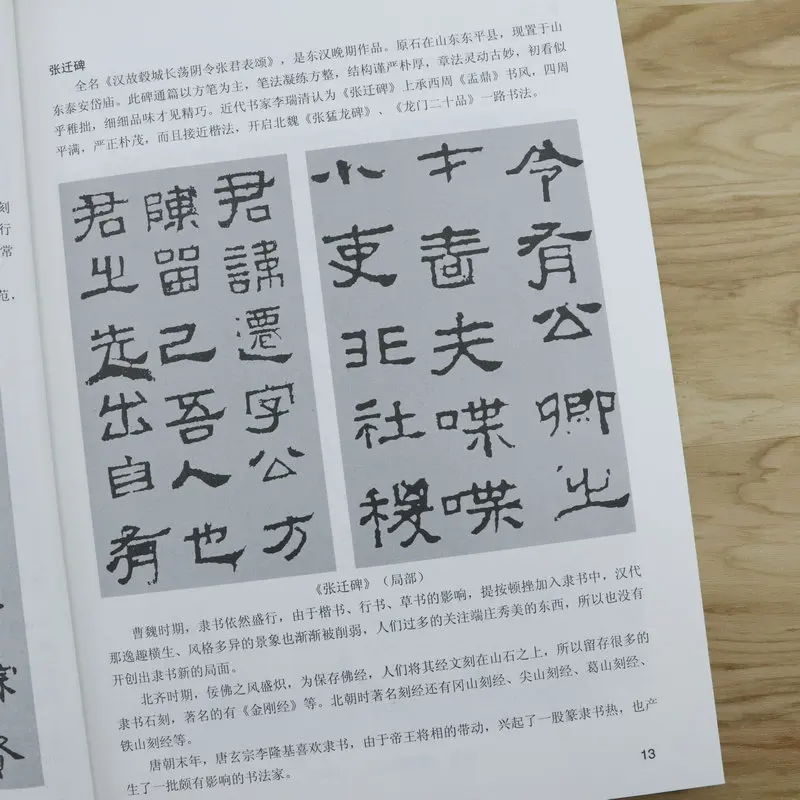 刻
行
常
范，
张迁碑
全名《汉故毂城长荡阴令张君表颂》，是东汉晚期作品。原石在山东东平县，现置于山
东泰安岱庙。此碑通篇以方笔为主，笔法凝练方整，结构谨严朴厚，章法灵动古妙，初看似
乎稚拙，细细品味才见精巧。近代书家李瑞清认为《张迁碑》上承西周《盂鼎》书风，四周
平满，严正朴茂，而且接近楷法，开启北魏《张猛龙碑》、《龙门二十品》一路书法。
君諱遷字公方
陳留己吾人也
君之先出自有
令有公卿之
才嗇夫喋喋
小吏非社稷
《张迁碑》（局部）
曹魏时期，隶书依然盛行，由于楷书、行书、草书的影响，提按顿挫加入隶书中，汉代
那逸趣横生、风格多异的景象也渐渐被削弱，人们过多的关注端庄秀美的东西，所以也没有
开创出隶书新的局面。
北齐时期，佞佛之风盛炽，为保存佛经，人们将其经文刻在山石之上，所以留存很多的
隶书石刻，著名的有《金刚经》等。北朝时著名刻经还有冈山刻经、尖山刻经、葛山刻经、
铁山刻经等。
唐朝末年，唐玄宗李隆基喜欢隶书，由于帝王将相的带动，兴起了一股篆隶书热，也产
生了一批颇有影响的书法家。
13